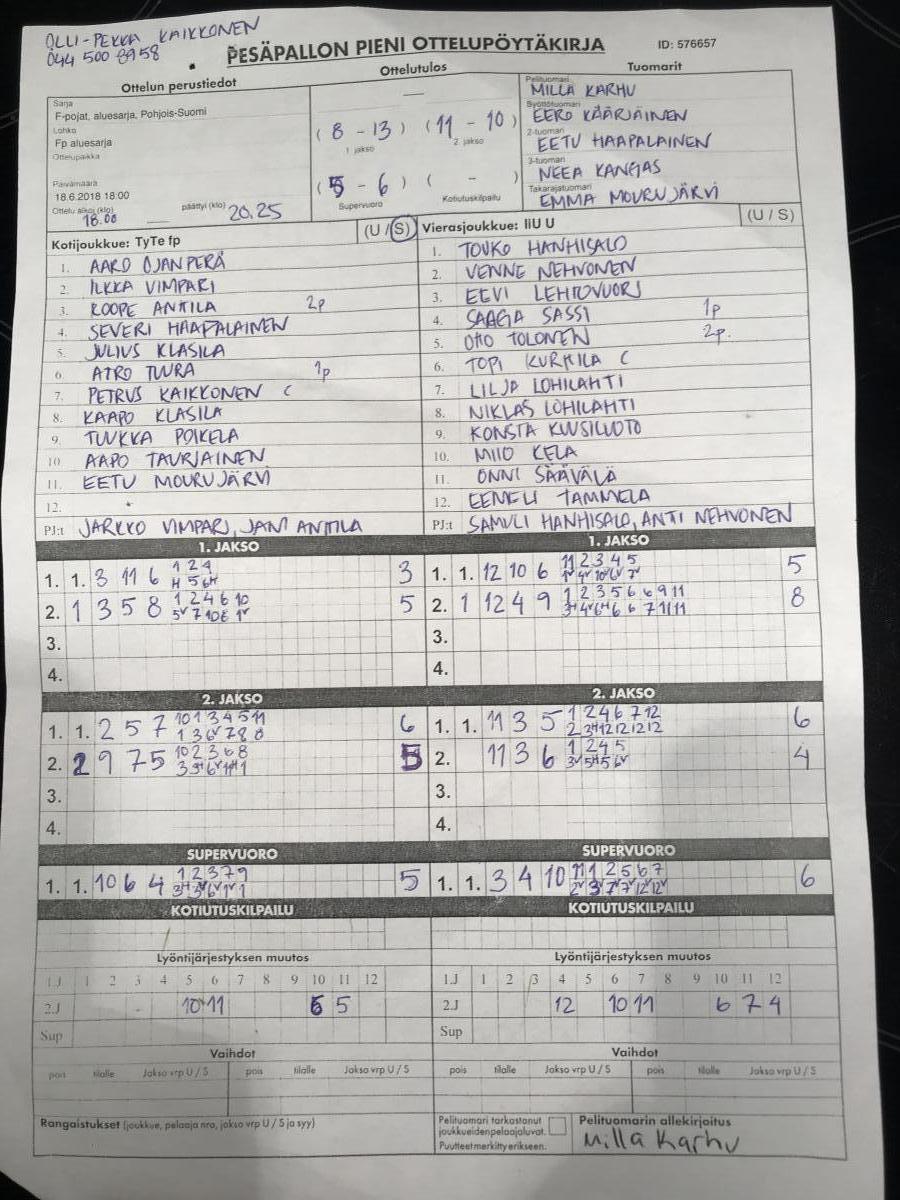 OLLI-PEKKA KAIKKONEN
044 500 8958
PESÄPALLON PIENI OTTELUPÖYTÄKIRJA ID: 576657
Ottelun perustiedot Ottelutulos Tuomarit
Sarja
F-pojat, aluesarja, Pohjois-Suomi
Lohko
Fp aluesarja
Ottelupaikka
Päivämäärä
18.6.2018 18:00
Ottelu alkoi (klo) 18.00 päättyi (klo) 20.25
( 8 - 13 ) ( 11 - 10 )
1. jakso 2. jakso
( 5 - 6 ) ( - )
Supervuoro Kotiutuskilpailu
Pelituomari MILLA KARHU
Syöttötuomari EERO KÄÄRIÄINEN
2-tuomari EETU HAAPALAINEN
3-tuomari NEEA KANGAS
Takarajatuomari EMMA MOURUJÄRVI
Kotijoukkue: TyTe fp (U / S)
1. AARO OJANPERÄ
2. ILKKA VIMPARI
3. ROOPE ANTTILA 2p
4. SEVERI HAAPALAINEN
5. JULIUS KLASILA
6. ATRO TUURA 1p
7. PETRUS KAIKKONEN C
8. KAAPO KLASILA
9. TUUKKA POIKELA
10 AAPO TAURIAINEN
11. EETU MOURUJÄRVI
12.
PJ:t JARKKO VIMPARI, JANI ANTTILA
Vierasjoukkue: IiU U (U / S)
1. TOUKO HANHISALO
2. VENNE NEHVONEN
3. EEVI LEHTOVUORI
4. SAAGA SASSI 1p
5. OTTO TOLONEN 2p.
6. TOPI KURTTILA C
7. LILJA LOHILAHTI
8. NIKLAS LOHILAHTI
9. KONSTA KUUSILUOTO
10. MIIO KELA
11. ONNI SÄÄVÄLÄ
12. EEMELI TAMMELA
PJ:t SAMULI HANHISALO, ANTTI NEHVONEN
1. JAKSO 1. JAKSO
1. 1. 3 11 6 1 2 4 3
1. 1. 12 10 6 11 2 3 4 5 5
2. 1 3 5 8 1 2 4 6 10 5
2. 1 12 4 9 1 2 3 5 6 6 9 11 8
3. 3.
4. 4.
2. JAKSO 2. JAKSO
1. 1. 2 5 7 10 1 3 4 5 11 6
1 3 6v 7 8 8
1. 1. 11 3 5 1 2 4 6 7 12 6
2 3H 12 12 12 12
2. 2 9 7 5 10 2 3 6 8 5
2. 11 3 6 1 2 4 5 4
3v 5H 5 6v
3. 3.
4. 4.
SUPERVUORO SUPERVUORO
1. 1. 10 6 4 1 2 3 7 9 5
1. 1. 3 4 10 11 1 2 5 6 7 6
KOTIUTUSKILPAILU KOTIUTUSKILPAILU
Lyöntijärjestyksen muutos Lyöntijärjestyksen muutos
1.J 1 2 3 4 5 6 7 8 9 10 11 12
1.J 1 2 3 4 5 6 7 8 9 10 11 12
2.J 10 11 6 5
2.J 12 10 11 6 7 4
Sup Sup
Vaihdot Vaihdot
pois tilalle Jakso vrp U / S pois tilalle Jakso vrp U / S
pois tilalle Jakso vrp U / S pois tilalle Jakso vrp U / S
Rangaistukset (joukkue, pelaaja nro, jakso vrp U / S ja syy)
Pelituomari tarkastanut
joukkueidenpelaajaluvat.
Puutteetmerkittyerikseen.
Pelituomarin allekirjoitus
Milla Karhu